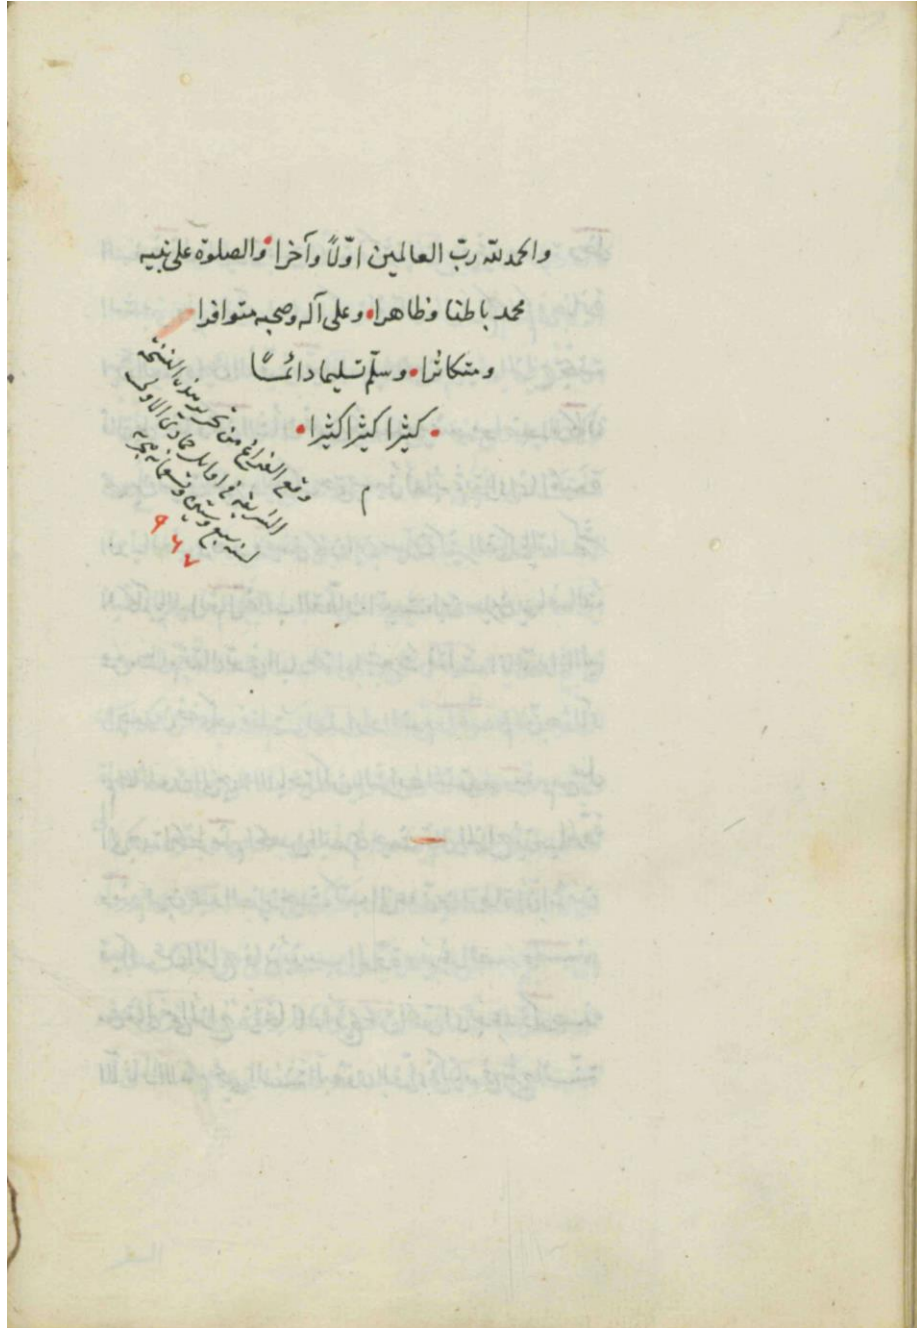 والحمد لله ربّ العالمين اوّلاً وآخرا والصلوة على نبيه
محمد باطنا وظاهرا وعلى آله وصحبه متوافرا
ومتكاثرا وسلّم تسليما دائماً
كثيرا كثيرا كثيرا
م
وقع الفراغ من تحرير هذه النسخة
الشريفة في اوايل جمادى الاولى
لسنه سبع وستين وتسعمائه هجريه
٩٦٧